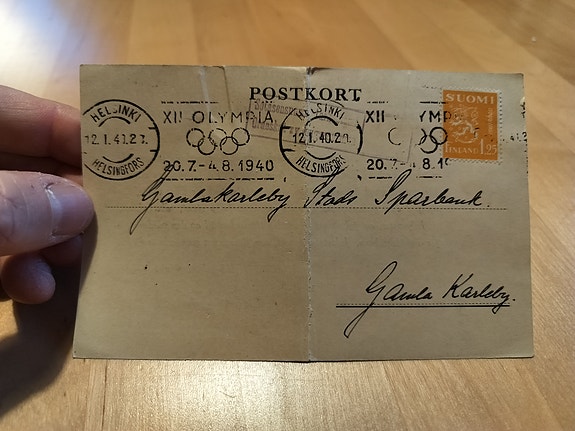 POSTKORT
HELSINKI
12.1.40.2
HELSINGFORS
XII OLYMPIA
20.7.-4.8.1940
HELSINKI
12.1.40.2
HELSINGFORS
XII
20.7.
SUOMI
FINLAND
Gamlakarleby Stads Sparbank.
Gamla Karleby.